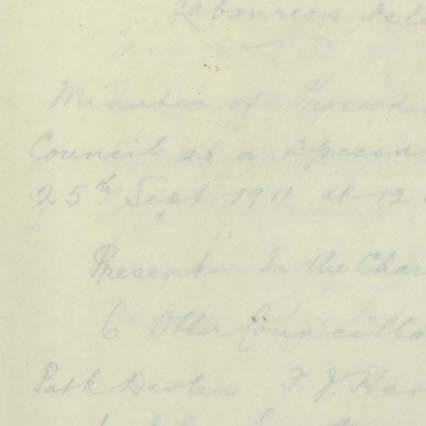 Labourers
Minutes of Proceed
Council at a Special
25th Sept 1911 at 12
Present In the Chair
6 Other Councillo
Patk Devlin F J Har